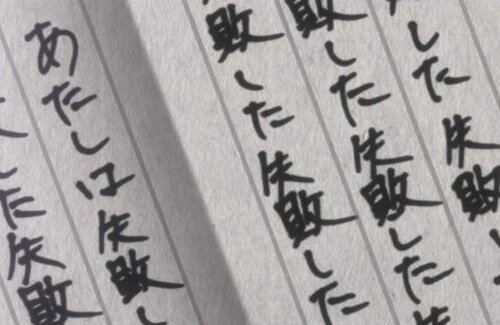 した失敗
敗した失敗した失
敗した失敗した
あたしは失敗し
した失敗